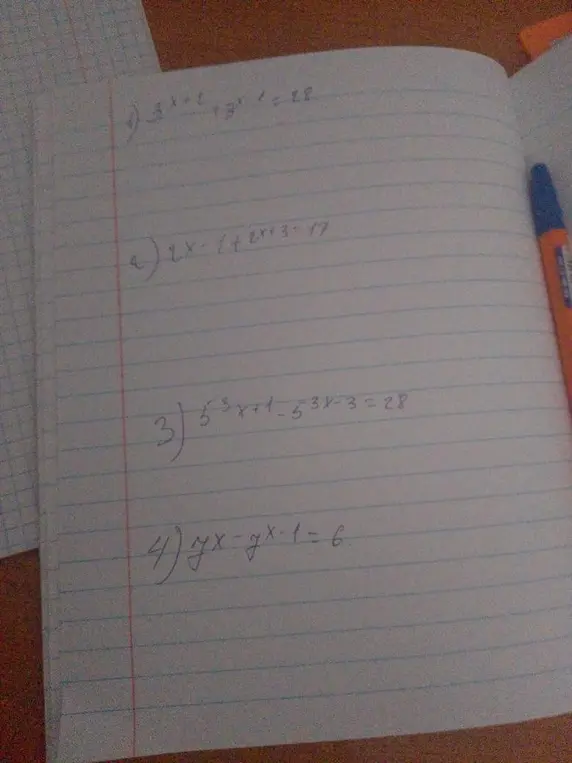 1) 3^x+2 + 3^x-1 = 28
2) 2x-1 + 2x+3 = 17
3) 5^3x+1 - 5^3x-3 = 28
4) 7x - 7x-1 = 6